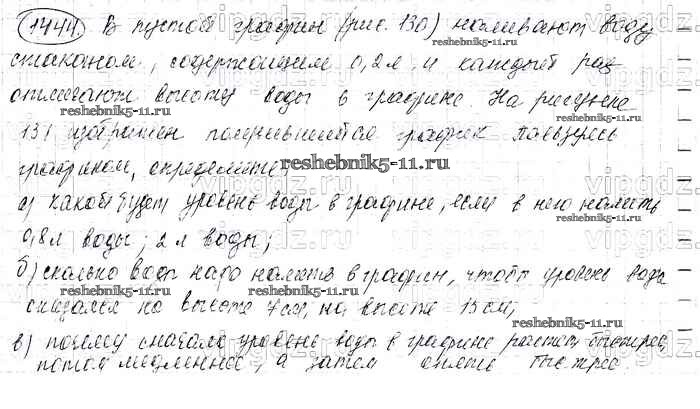 1444. В пустой графин (рис. 130) наливают воду
стаканом, содержащим 0,2 л и каждый раз
отмечают высоту воды в графине На рисунке
131 изображен получившийся график Пользуясь
графиком, определите:
а) какой будет уровень воды в графине, если в него налить
0,8 л воды; 2 л воды;
б) сколько воды надо налить в графин, чтобы уровень воды
оказался на высоте 7 см, на высоте 15 см;
в) почему сначала уровень воды в графине растет быстрее,
потом медленнее, а затем опять быстрее.
reshebnik5-11.ru
reshebnik5-11.ru
reshebnik5-11.ru
reshebnik5-11.ru
reshebnik5-11.ru
reshebnik5-11.ru
vipgdz.ru